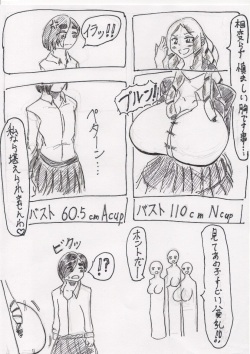 相変らず慎ましい胸です事…
イラッ!!
プルン!!
バスト 110cm Ncup
ペターン…
私なら堪えられませんわ♡
バスト 60.5cm Acup
見てあの子すごい貧乳!!
ホントだー
ビクッ
!?